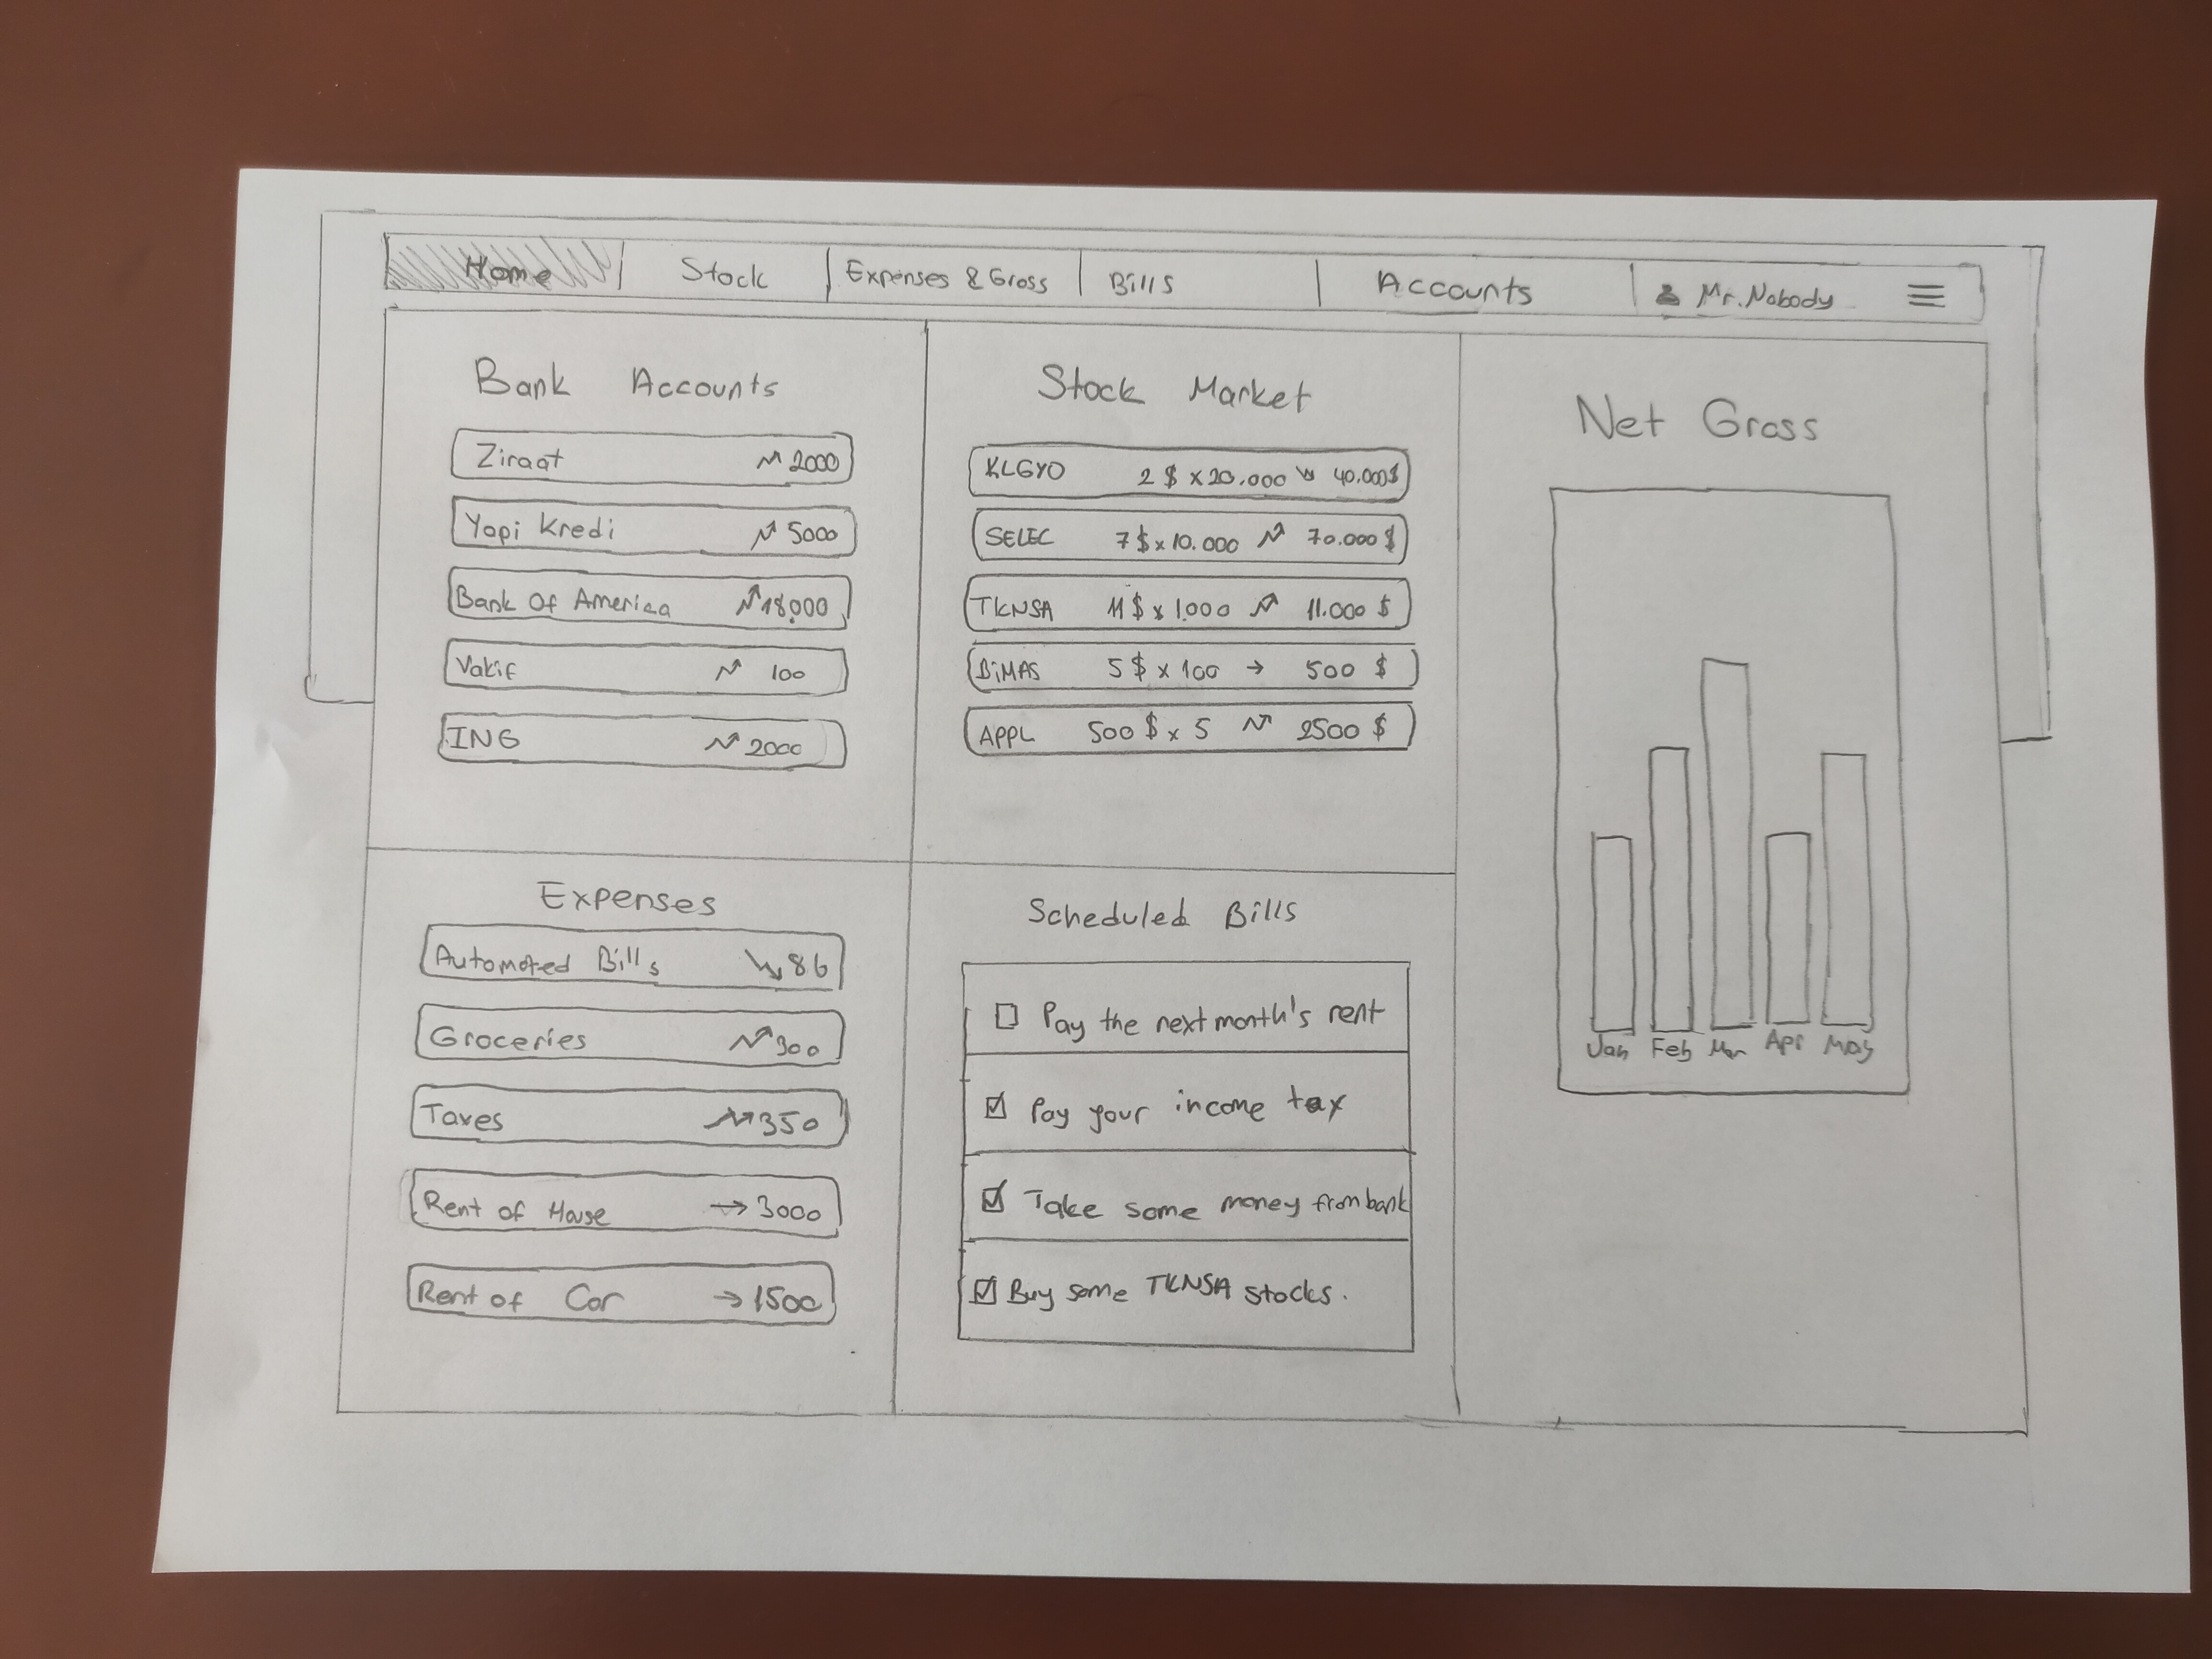 Home Stock Expenses & Gross Bills Accounts Mr. Nobody
Bank Accounts
Ziraat 2000
Yapi Kredi 5000
Bank Of America 18.000
Vakif 100
ING 2000
Stock Market
KLGYO 2 $ x 20.000 40.000$
SELEC 7 $ x 10.000 70.000 $
TKNSA 11 $ x 1.000 11.000 $
BiMAS 5 $ x 100 → 500 $
APPL 500 $ x 5 2500 $
Net Gross
Jan Feb Mar Apr May
Expenses
Automated Bills 86
Groceries 300
Taxes 350
Rent of House → 3000
Rent of Car → 1500
Scheduled Bills
☐ Pay the next month's rent
☑ Pay your income tax
☑ Take some money from bank
☑ Buy some TKNSA stocks.